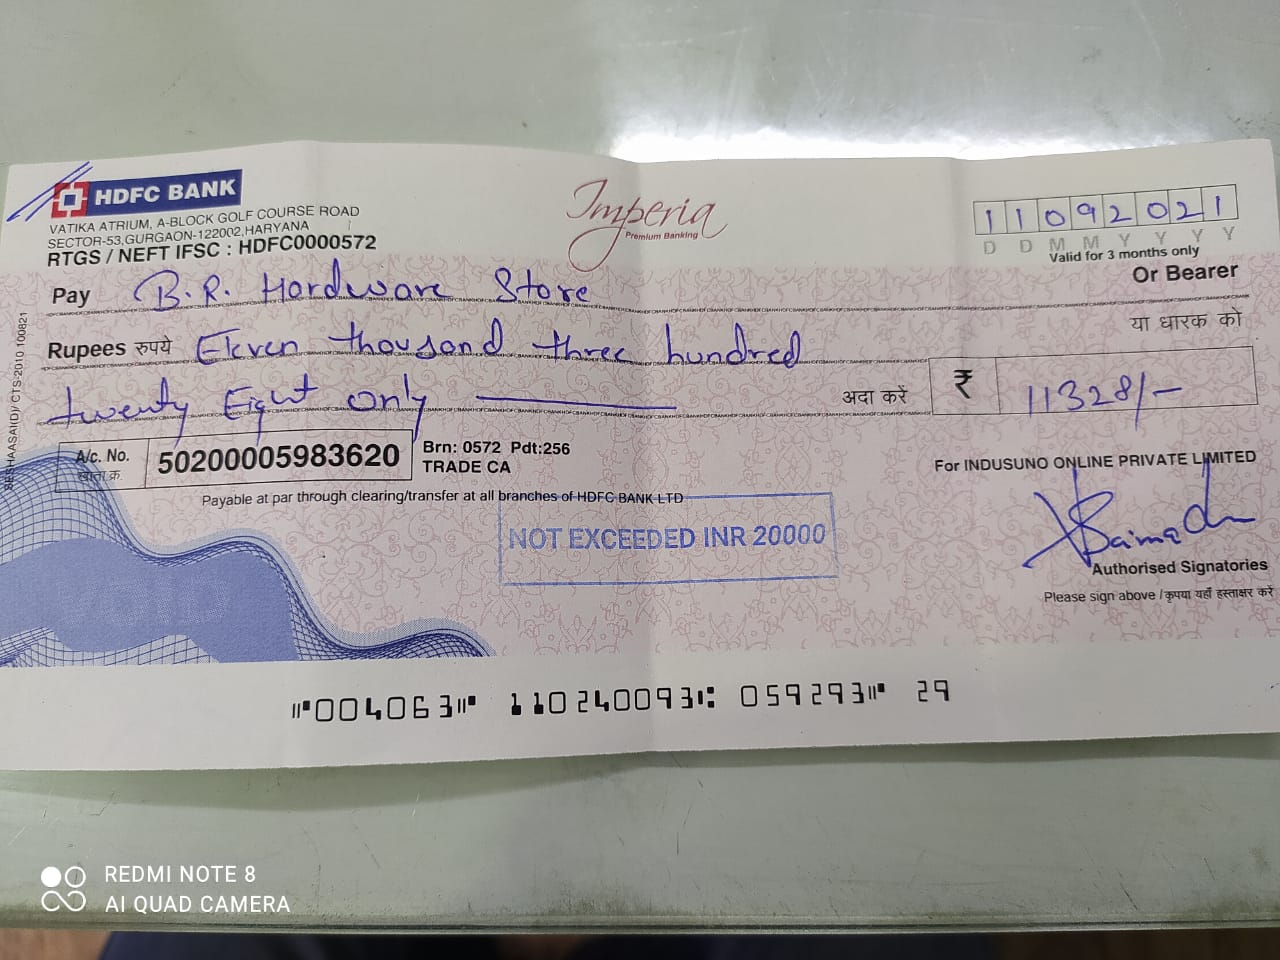 HDFC BANK
VATIKA ATRIUM, A-BLOCK GOLF COURSE ROAD
SECTOR-53,GURGAON-122002,HARYANA
RTGS / NEFT IFSC : HDFC0000572
Imperia
Premium Banking
11092021
D D M M Y Y Y Y
Valid for 3 months only
Pay B.R. Hardware Store
Or Bearer
या धारक को
Rupees रुपये Eleven thousand three hundred
twenty Eight Only
अदा करें ₹ 11328/-
A/c. No. 50200005983620
खाता क्र.
Brn: 0572 Pdt:256
TRADE CA
For INDUSUNO ONLINE PRIVATE LIMITED
Payable at par through clearing/transfer at all branches of HDFC BANK LTD
NOT EXCEEDED INR 20000
Authorised Signatories
Please sign above / कृपया यहाँ हस्ताक्षर करें
CTS-2010 100821
⑈004063⑈ 110240093⑆ 059293⑈ 29
REDMI NOTE 8
AI QUAD CAMERA